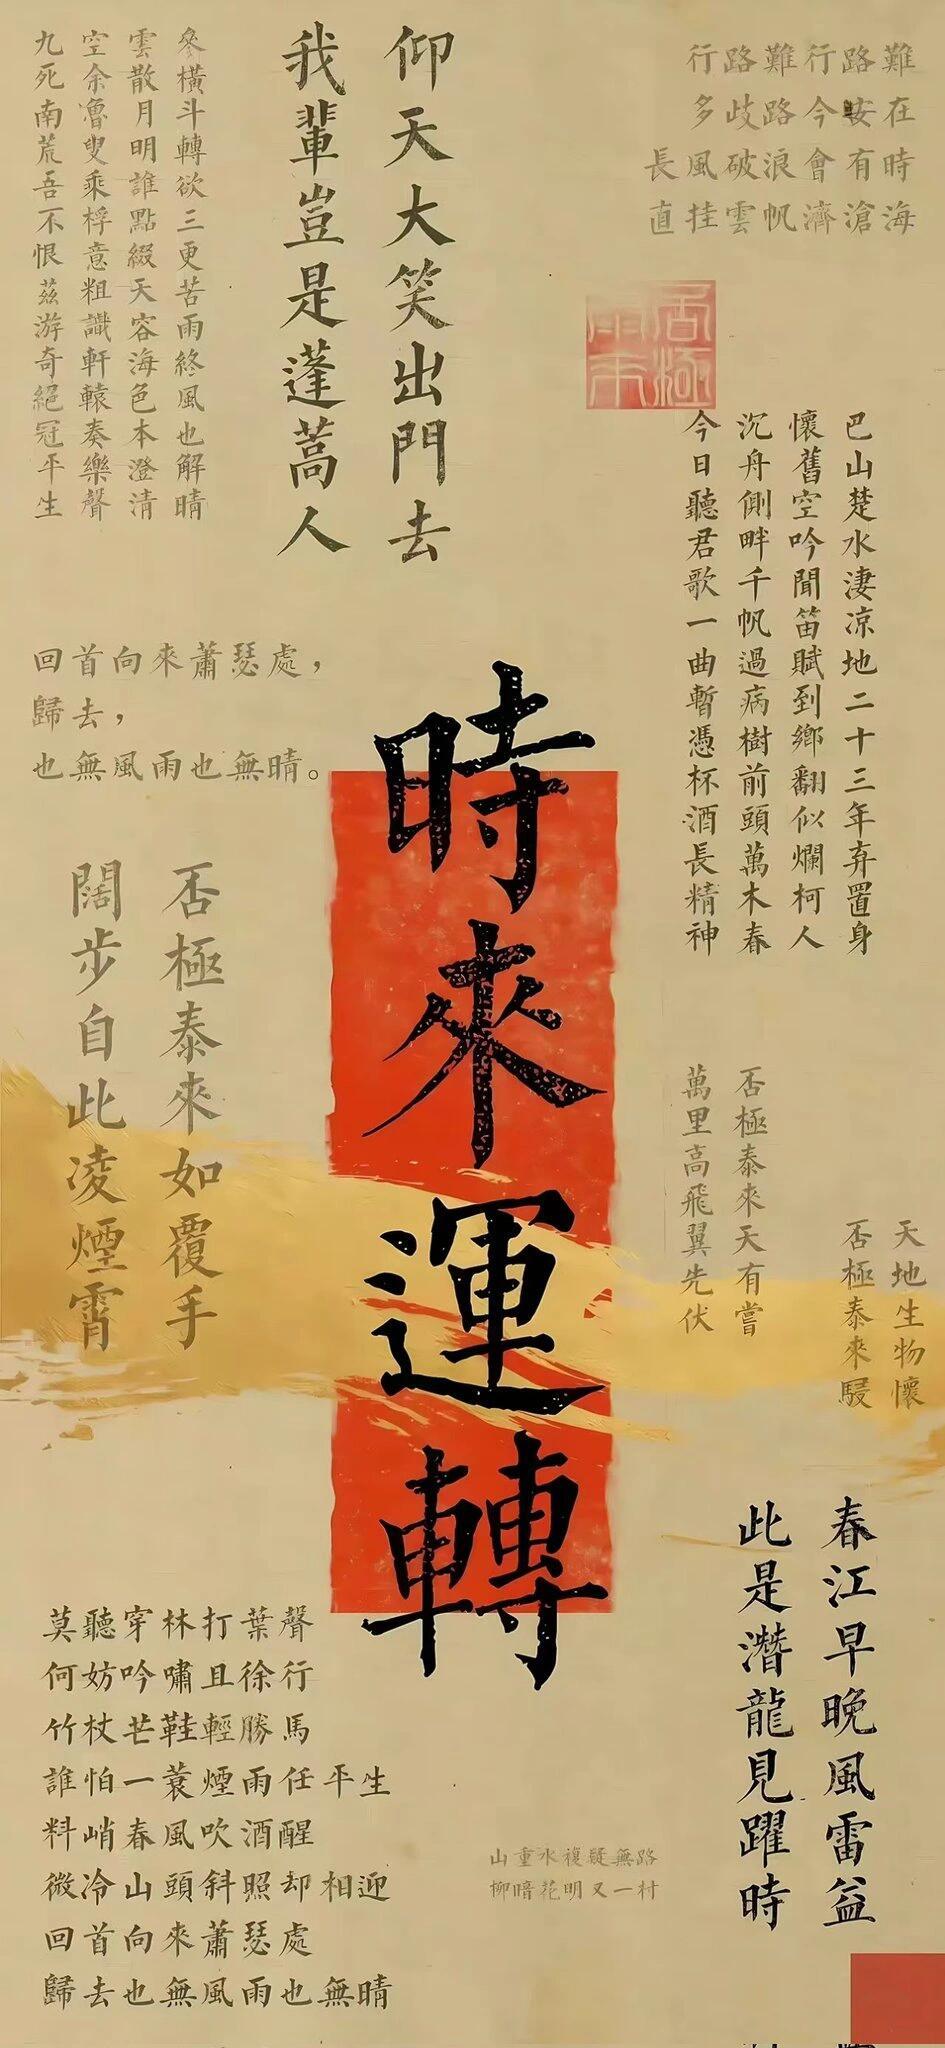 行路難行路難
多歧路今安在
長風破浪會有時
直挂雲帆濟滄海
仰天大笑出門去
我輩豈是蓬蒿人
參橫斗轉欲三更苦雨終風也解晴
雲散月明誰點綴天容海色本澄清
空余魯叟乘桴意粗識軒轅奏樂聲
九死南荒吾不恨茲游奇絕冠平生
巴山楚水淒涼地二十三年弃置身
懷舊空吟聞笛賦到鄉翻似爛柯人
沉舟側畔千帆過病樹前頭萬木春
今日聽君歌一曲暫憑杯酒長精神
回首向來蕭瑟處，
歸去，
也無風雨也無晴。
時來運轉
否極泰來如覆手
闊步自此凌煙霄
否極泰來天有嘗
萬里高飛翼先伏
天地生物懷
否極泰來駸
春江早晚風雷益
此是潛龍見躍時
莫聽穿林打葉聲
何妨吟嘯且徐行
竹杖芒鞋輕勝馬
誰怕一蓑煙雨任平生
料峭春風吹酒醒
微冷山頭斜照却相迎
回首向來蕭瑟處
歸去也無風雨也無晴
山重水複疑無路
柳暗花明又一村